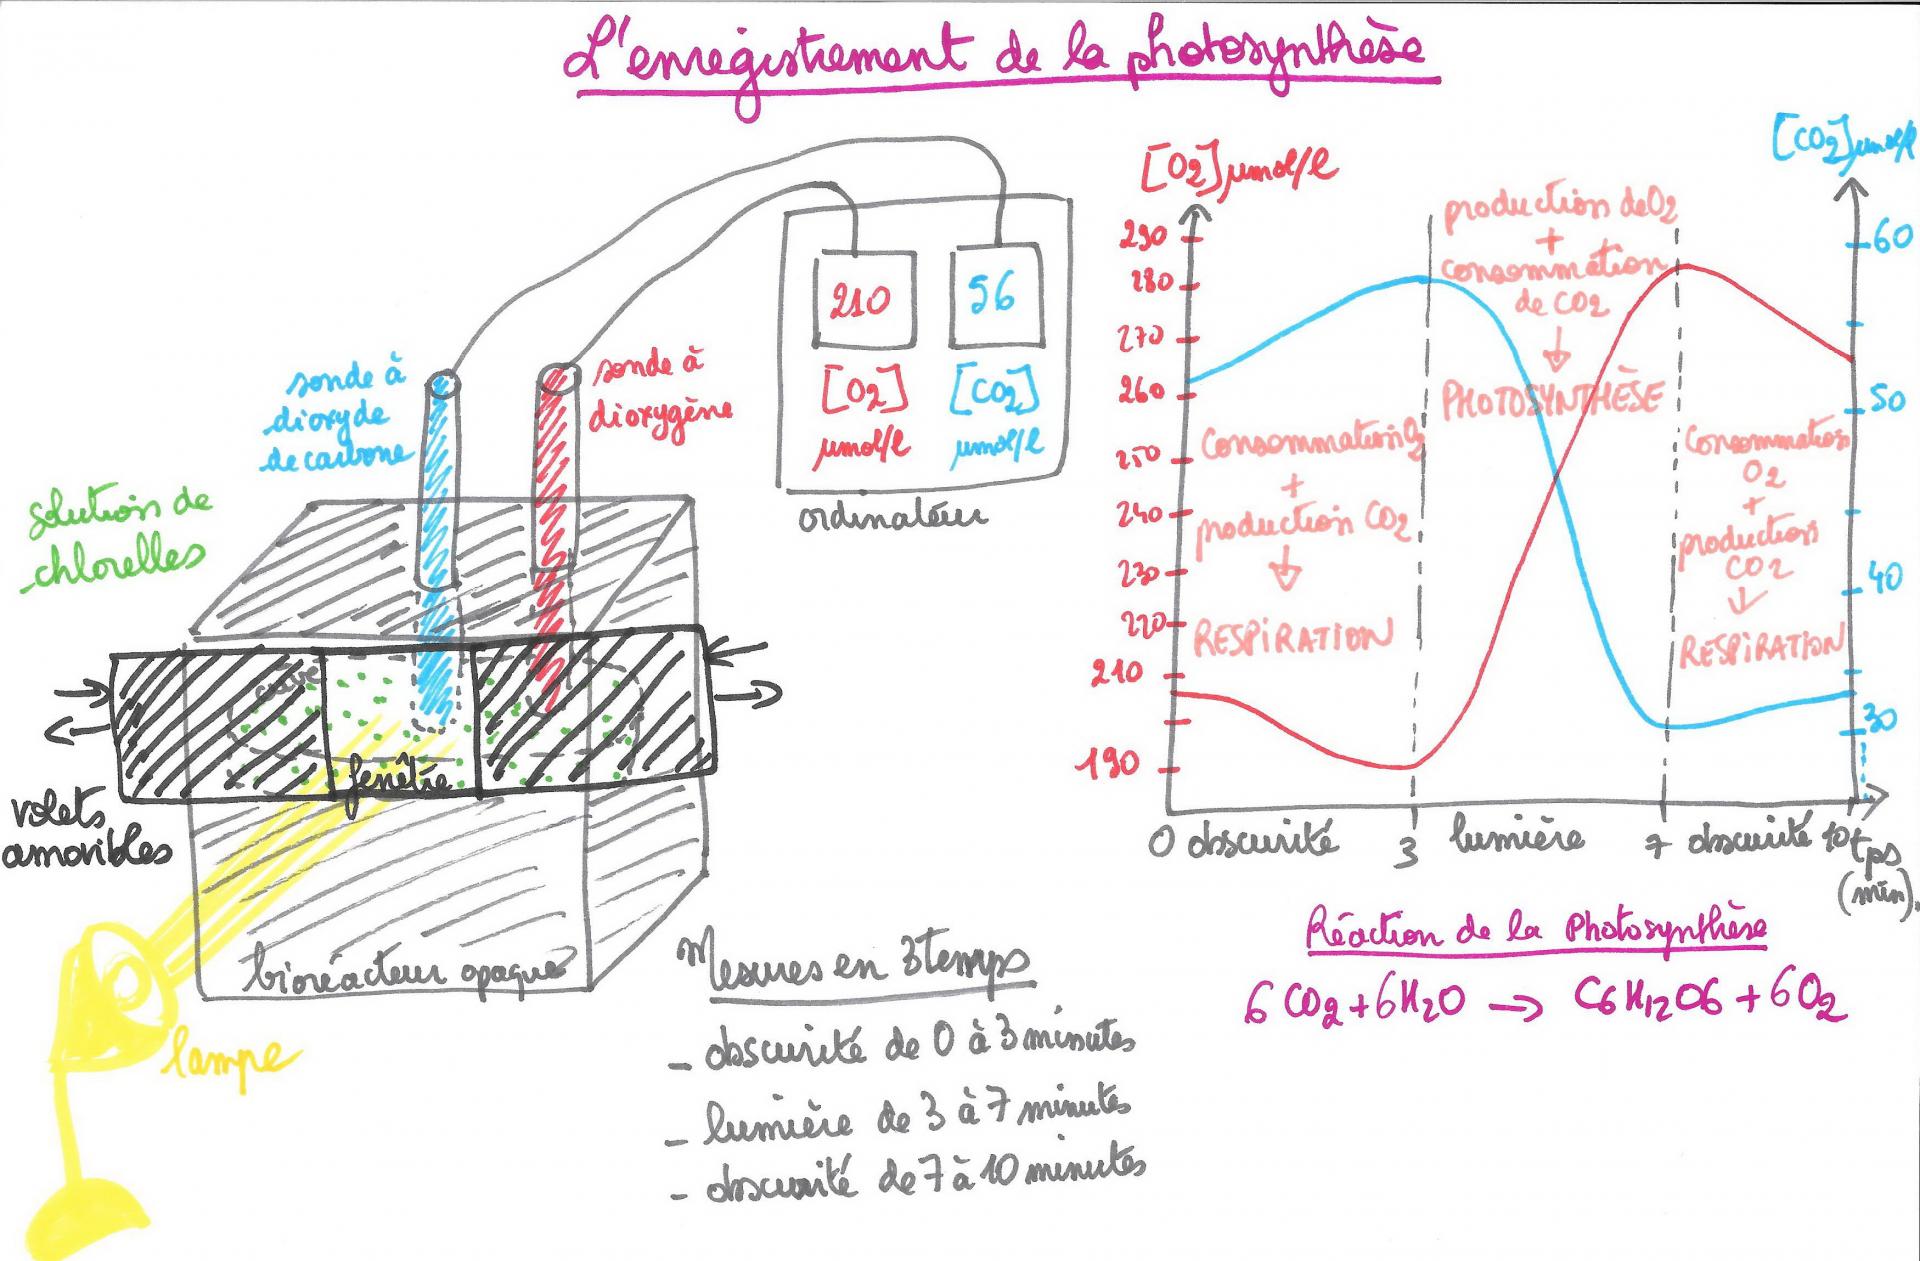 L'enregistrement de la photosynthèse
sonde à
dioxyde
de carbone
sonde à
dioxygène
solution de
chlorelles
210
56
[O2]
µmol/l
[CO2]
µmol/l
ordinateur
cuve
fenêtre
volets
amovibles
bioréacteur opaque
lampe
Mesures en 3 temps
- obscurité de 0 à 3 minutes
- lumière de 3 à 7 minutes
- obscurité de 7 à 10 minutes
[O2] µmol/l
290
280
270
260
250
240
230
220
210
190
[CO2] µmol/l
60
50
40
30
Consommation O2
+
production CO2
↓
RESPIRATION
production de O2
+
consommation
de CO2
↓
PHOTOSYNTHÈSE
Consommation
O2
+
production
CO2
↓
RESPIRATION
0 obscurité 3 lumière 7 obscurité 10 tps
(min)
Réaction de la Photosynthèse
6 CO2 + 6H2O → C6H12O6 + 6O2